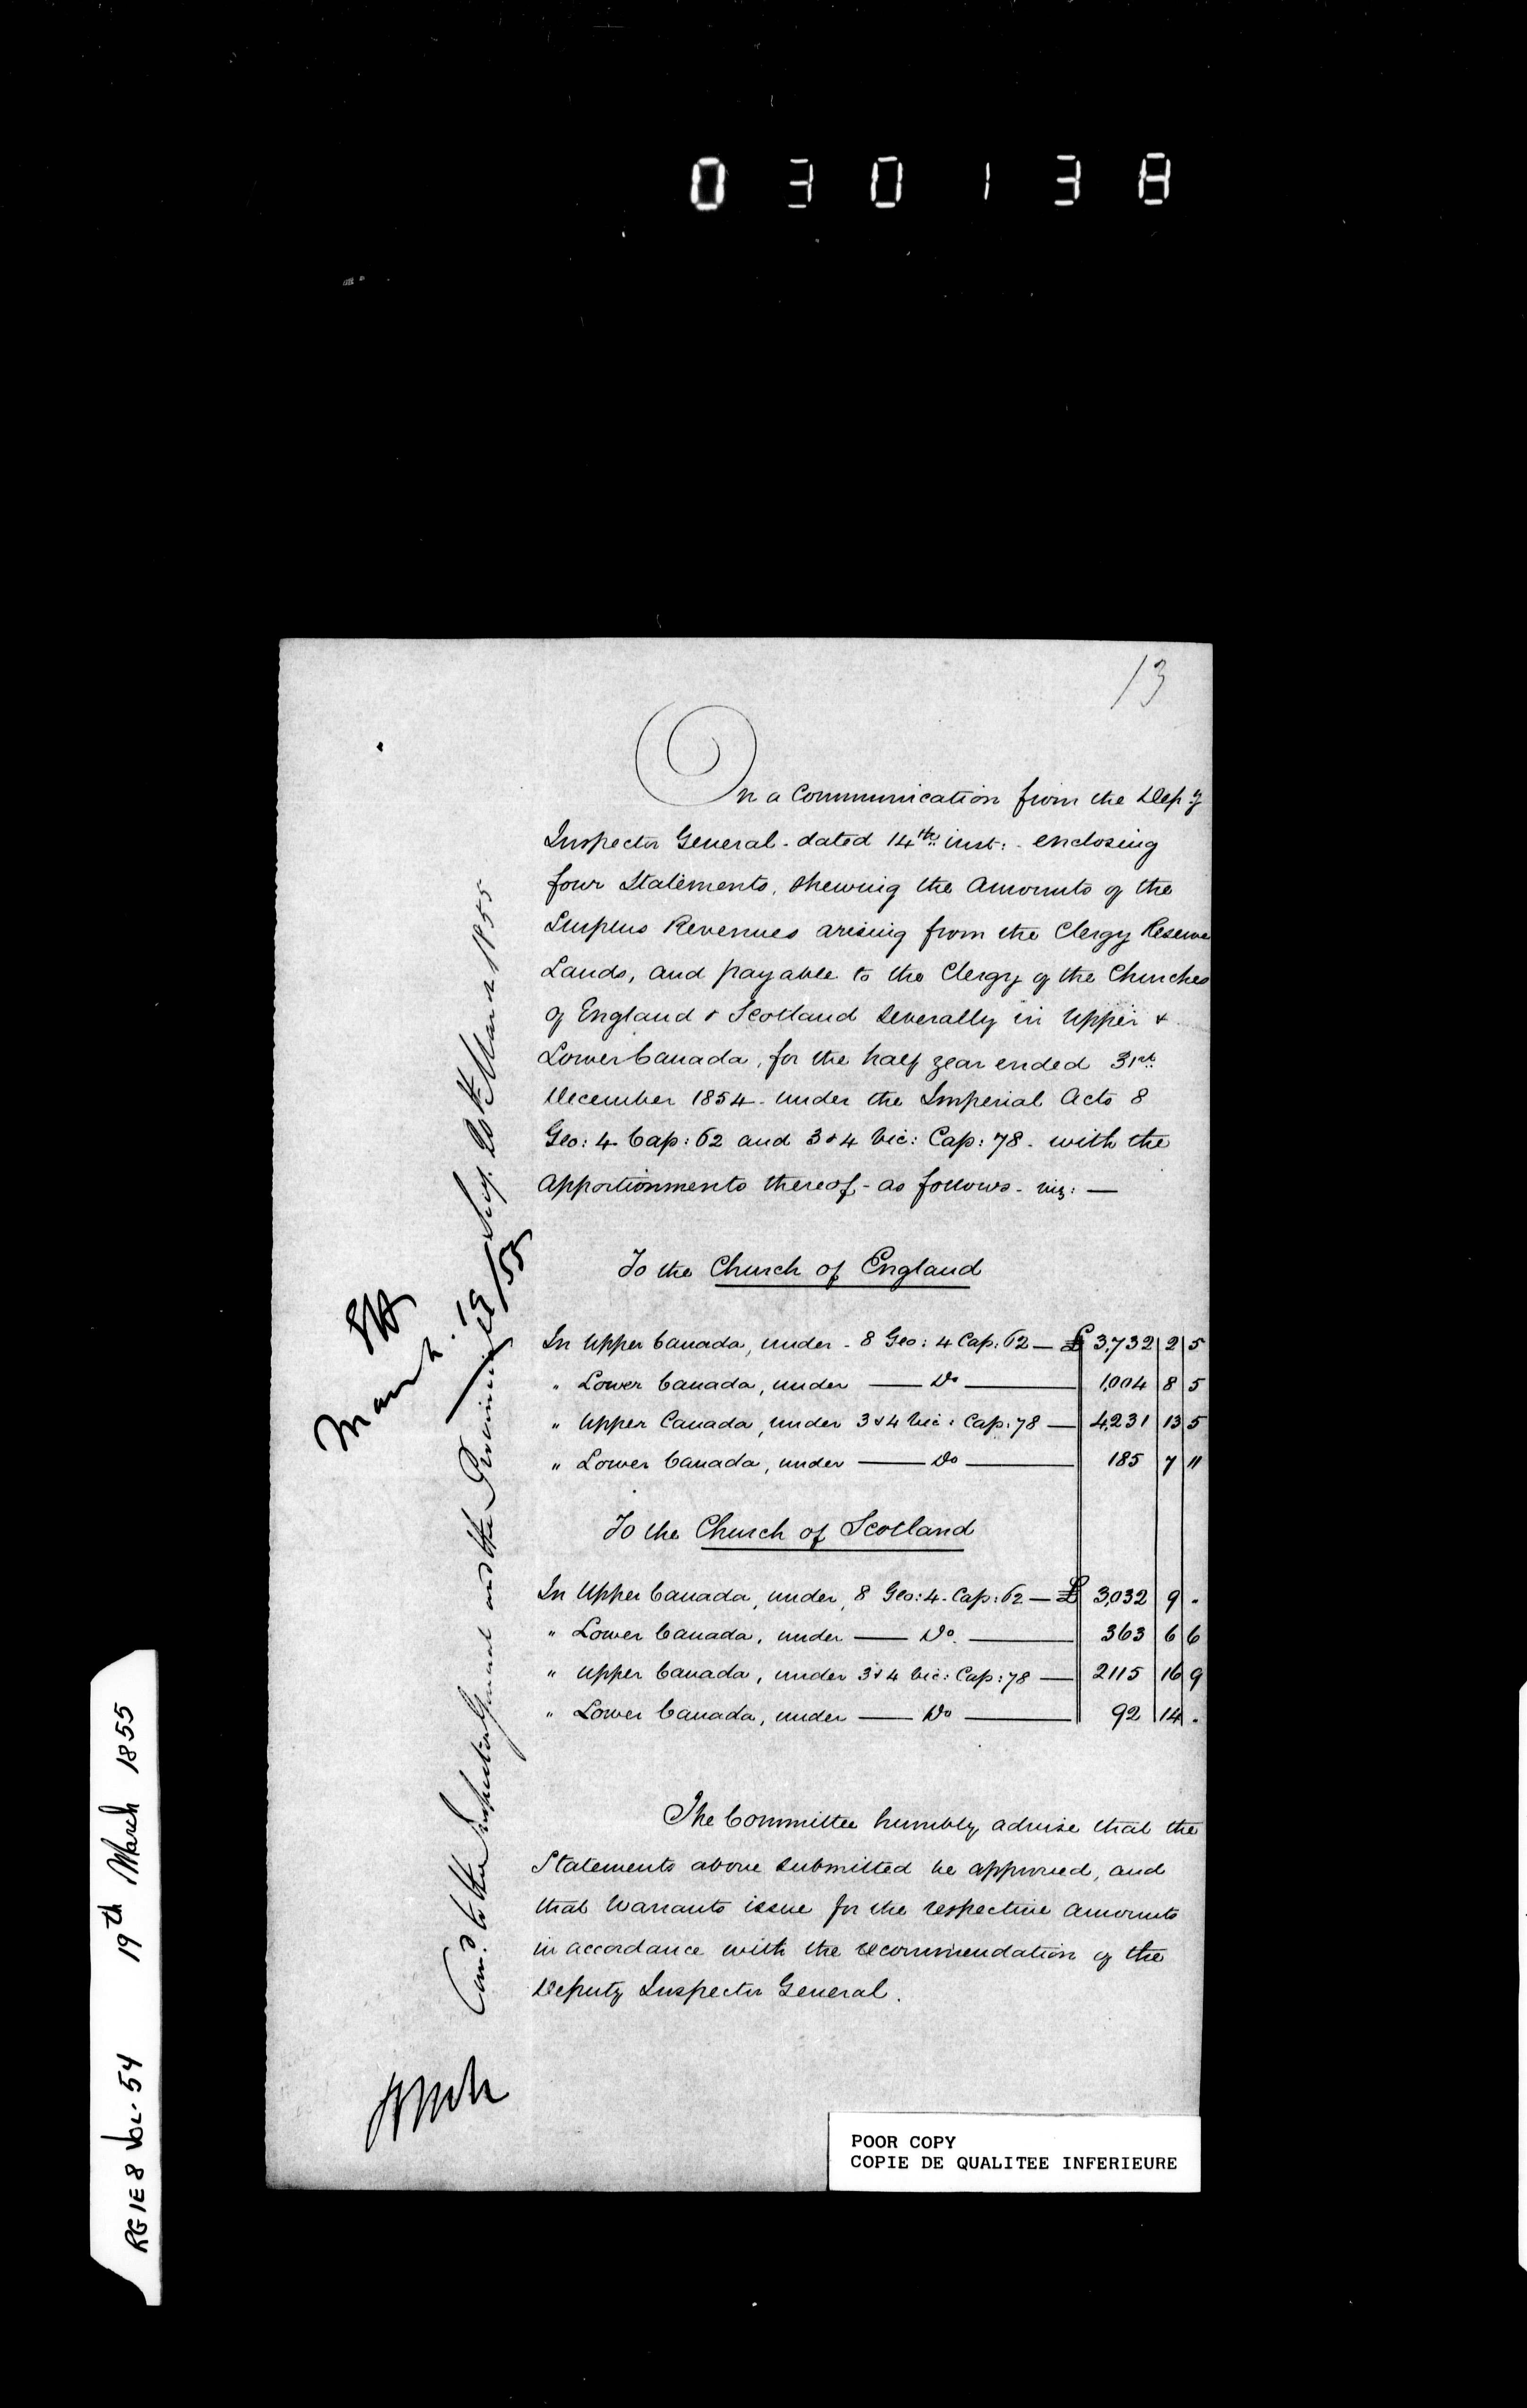 030138
13
On a Communication from the Depy
Inspector General - dated 14th inst: - enclosing
four Statements, shewing the Amounts of the
Surplus Revenues arising from the Clergy Reserve
Lands, and payable to the Clergy of the Churches
of England & Scotland severally in Upper &
Lower Canada, for the half year ended 31st
December 1854 - under the Imperial Acts 8
Geo: 4 Cap: 62 and 3 & 4 Vic: Cap: 78 - with the
Apportionments thereof - as follows - viz: —
To the Church of England
In Upper Canada, under - 8 Geo: 4 Cap: 62 — £ 3,732 | 2 | 5
" Lower Canada, under — Do — 1,004 | 8 | 5
" Upper Canada, under 3 & 4 Vic: Cap: 78 — 4,231 | 13 | 5
" Lower Canada, under — Do — 185 | 7 | 11
To the Church of Scotland
In Upper Canada, under, 8 Geo: 4 - Cap: 62 — £ 3,032 | 9 | -
" Lower Canada, under — Do. — 363 | 6 | 6
" Upper Canada, under 3 & 4 Vic: Cap: 78 — 2115 | 16 | 9
" Lower Canada, under — Do — 92 | 14 | -
The Committee humbly advise that the
Statements above submitted be approved, and
that Warrants issue for the respective amounts
in accordance with the recommendation of the
Deputy Inspector General.
March 19/55
to the Inspector General and the 20th March 1855
RG 1 E 8 Vol. 54 19th March 1855
POOR COPY
COPIE DE QUALITEE INFERIEURE